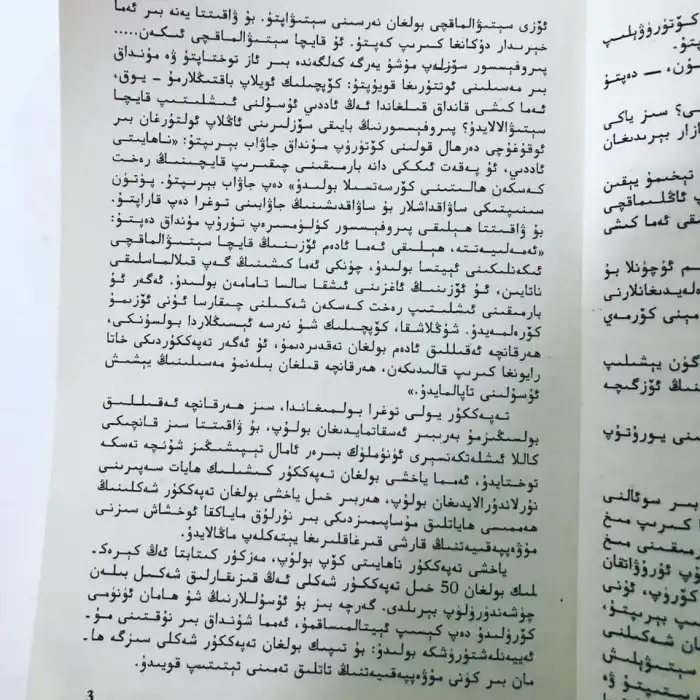 ئۆزى سېتىۋالماقچى بولغان نەرسىنى سېتىۋاپتۇ. بۇ ۋاقىتتا يەنە بىر ئەما
خېرىدار دۇكانغا كىرىپ كەپتۇ. ئۇ قايچا سېتىۋالماقچى ئىكەن.....
پىروفېسسور سۆزلەپ مۇشۇ يەرگە كەلگەندە بىر ئاز توختاپتۇ ۋە مۇنداق
بىر مەسىلىنى ئوتتۇرىغا قويۇپتۇ: كۆپچىلىك ئويلاپ باقتىڭلارمۇ - يوق،
ئەما كىشى قانداق قىلغاندا ئەڭ ئاددىي ئۇسۇلنى ئىشلىتىپ قايچا
سېتىۋالالايدۇ؟ پىروفېسسورنىڭ بايىقى سۆزلىرىنى ئاڭلاپ ئولتۇرغان بىر
ئوقۇغۇچى دەرھال قولىنى كۆتۈرۈپ مۇنداق جاۋاب بېرىپتۇ: «ناھايىتى
ئاددىي، ئۇ پەقەت ئىككى دانە بارمىقىنى چىقىرىپ قايچىنىڭ رەخت
كەسكەن ھالىتىنى كۆرسەتسىلا بولىدۇ» دەپ جاۋاب بېرىپتۇ. پۈتۈن
سىنىپتىكى ساۋاقداشلار بۇ ساۋاقدىشىنىڭ جاۋابىنى توغرا دەپ قاراپتۇ.
بۇ ۋاقىتتا ھېلىقى پىروفېسسور كۈلۈمسىرەپ تۇرۇپ مۇنداق دەپتۇ:
«ئەمەلىيەتتە، ھېلىقى ئەما ئادەم ئۆزىنىڭ قايچا سېتىۋالماقچى
ئىكەنلىكىنى ئېيتسا بولىدۇ، چۈنكى ئەما كىشىنىڭ گەپ قىلالماسلىقى
ناتايىن، ئۇ ئۆزىنىڭ ئاغزىنى ئىشقا سالسا تامامەن بولىدۇ. ئەگەر ئۇ
بارمىقىنى ئىشلىتىپ رەخت كەسكەن شەكىلنى چىقارسا ئۇنى ئۆزىمۇ
كۆرەلمەيدۇ. شۇڭلاشقا، كۆپچىلىك شۇ نەرسە ئېسىڭلاردا بولسۇنكى،
ھەرقانچە ئەقىللىق ئادەم بولغان تەقدىردىمۇ، ئۇ ئەگەر تەپەككۇردىكى خاتا
رايونغا كىرىپ قالىدىكەن، ھەرقانچە قىلغان بىلەنمۇ مەسىلىنىڭ يېشىش
ئۇسۇلىنى تاپالمايدۇ.»
تەپەككۇر يولى توغرا بولمىغاندا، سىز ھەرقانچە ئەقىللىق
بولسىڭىزمۇ بەرىبىر ئەسقاتمايدىغان بولۇپ، بۇ ۋاقىتتا سىز قانچىكى
كاللا ئىشلەتكەنسېرى ئۈنۈملۈك بىرەر ئامال تېپىشىڭىز شۇنچە تەسكە
توختايدۇ، ئەمما ياخشى بولغان تەپەككۇر كىشىلىك ھايات سەپىرىنى
نۇرلاندۇرالايدىغان بولۇپ، ھەربىر خىل ياخشى بولغان تەپەككۇر شەكلىنىڭ
ھەممىسى ھاياتلىق مۇساپىمىزدىكى بىر نۇرلۇق ماياكقا ئوخشاش سىزنى
مۇۋەپپەقىيەتنىڭ قارشى قىرغاقلىرىغا يېتەكلەپ ماڭالايدۇ.
ياخشى تەپەككۇر ناھايىتى كۆپ بولۇپ، مەزكۇر كىتابتا ئەڭ كېرەك-
لىك بولغان 50 خىل تەپەككۇر شەكلى ئەڭ قىزىقارلىق شەكىل بىلەن
چۈشەندۈرۈلۈپ بېرىلدى. گەرچە بىز بۇ ئۇسۇللارنىڭ شۇ ھامان ئۈنۈمى
كۆرۈلىدۇ دەپ كېسىپ ئېيتالمىساقمۇ، ئەمما شۇنداق بىر نۇقتىنى مۇ-
ئەييەنلەشتۈرۈشكە بولىدۇ: بۇ تىپىك بولغان تەپەككۇر شەكلى سىزگە ھا-
مان بىر كۈنى مۇۋەپپەقىيەتنىڭ تاتلىق تەمىنى تېتىتىپ قويىدۇ.
3
كۆتۈرۈۋېلىپ
پتۇ.
ئۇن، — دەپتۇ
ى؟ سىز ياكى
ازار بېرىدىغان
تېخىمۇ يېقىن
پ ئاڭلىماقچى
ىقى ئەما كىشى
م ئۈچۈنلا بۇ
ەلەيدىغانلارنى
مېنى كۆرمەي
گۈن يېشىلىپ
نىڭ ئۆزگىچە
ىنى يورۇتۇپ
بىر سوئالنى
كىرىپ مىخ
مىقىنى مىخ
ۆپ ئۇرۇۋاتقان
كۆرۈپ، ئۇنى
ىپ بېرىپتۇ،
ان شەكىلنى
ىپتۇ ۋە